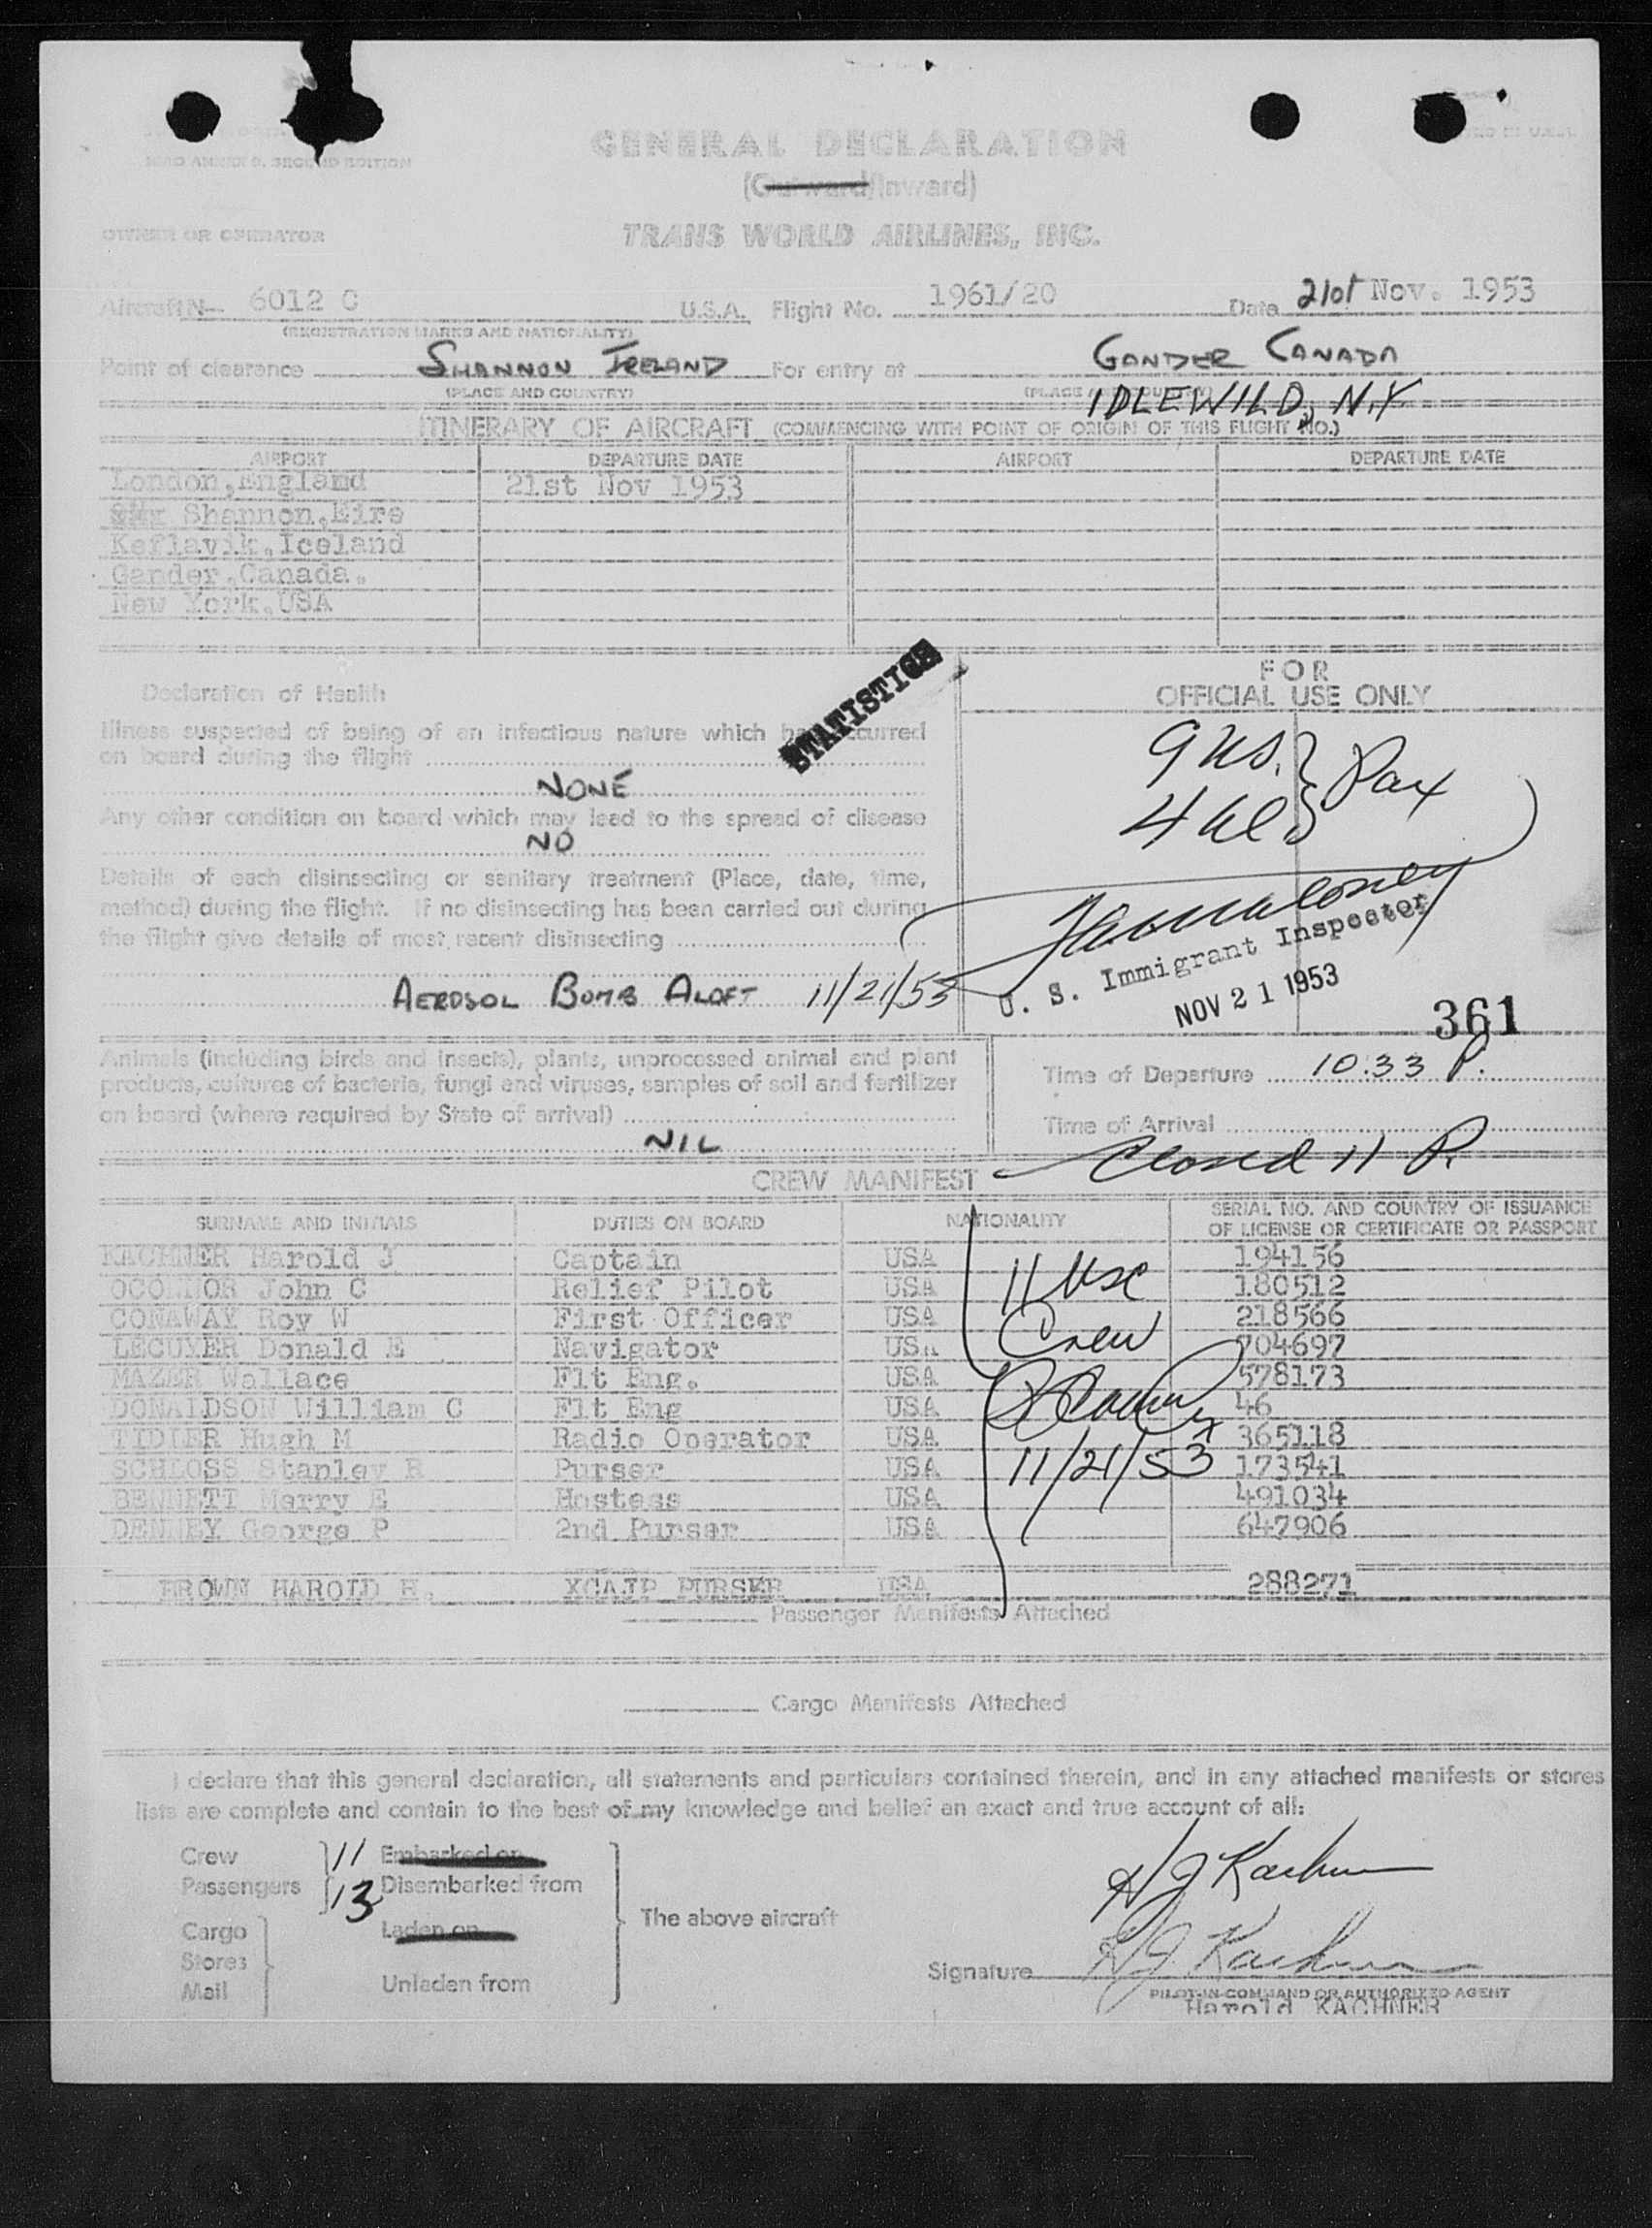 ICAO ANNEX 9, SECOND EDITION
GENERAL DECLARATION
(Outward/Inward)
OWNER OR OPERATOR TRANS WORLD AIRLINES, INC.
Aircraft N- 6012 C U.S.A. Flight No. 1961/20 Date 21st Nov. 1953
(REGISTRATION MARKS AND NATIONALITY)
Point of clearance SHANNON IRELAND For entry at GANDER CANADA
(PLACE AND COUNTRY) (PLACE AND COUNTRY) IDLEWILD, N.Y
ITINERARY OF AIRCRAFT (COMMENCING WITH POINT OF ORIGIN OF THIS FLIGHT NO.)
AIRPORT DEPARTURE DATE AIRPORT DEPARTURE DATE
London, England 21st Nov 1953
Shannon, Eire
Keflavik, Iceland
Gander, Canada.
New York, USA
STATISTICS
FOR
OFFICIAL USE ONLY
Declaration of Health
Illness suspected of being of an infectious nature which has occurred
on board during the flight
NONE
Any other condition on board which may lead to the spread of disease
NO
Details of each disinsecting or sanitary treatment (Place, date, time,
method) during the flight. If no disinsecting has been carried out during
the flight give details of most recent disinsecting
AEROSOL BOMB ALOFT 11/21/53
9 US. Pax
4
U. S. Immigrant Inspector
NOV 21 1953
361
Animals (including birds and insects), plants, unprocessed animal and plant
products, cultures of bacteria, fungi and viruses, samples of soil and fertilizer
on board (where required by State of arrival)
NIL
Time of Departure 10:33 P.
Time of Arrival
Closed 11 P.
CREW MANIFEST
SURNAME AND INITIALS DUTIES ON BOARD NATIONALITY SERIAL NO. AND COUNTRY OF ISSUANCE
OF LICENSE OR CERTIFICATE OR PASSPORT
KACHNER Harold J Captain USA 194156
OCONNOR John C Relief Pilot USA 180512
CONAWAY Roy W First Officer USA 218566
LECUYER Donald E Navigator USA 704697
MAZER Wallace Flt Eng. USA 578173
DONALDSON William C Flt Eng USA 46
TIDLER Hugh M Radio Operator USA 365118
SCHLOSS Stanley R Purser USA 173541
BENNETT Merry E Hostess USA 491034
DENNEY George P 2nd Purser USA 647906
11 USC
Crew
11/21/53
BROWN HAROLD H. PURSER USA 288271
Passenger Manifests Attached
Cargo Manifests Attached
I declare that this general declaration, all statements and particulars contained therein, and in any attached manifests or stores
lists are complete and contain to the best of my knowledge and belief an exact and true account of all:
Crew 11 Embarked on
Passengers 13 Disembarked from
Cargo Laden on
Stores
Mail Unladen from
The above aircraft
H J Kachner
Signature H J Kachner
PILOT-IN-COMMAND OR AUTHORIZED AGENT
Harold KACHNER